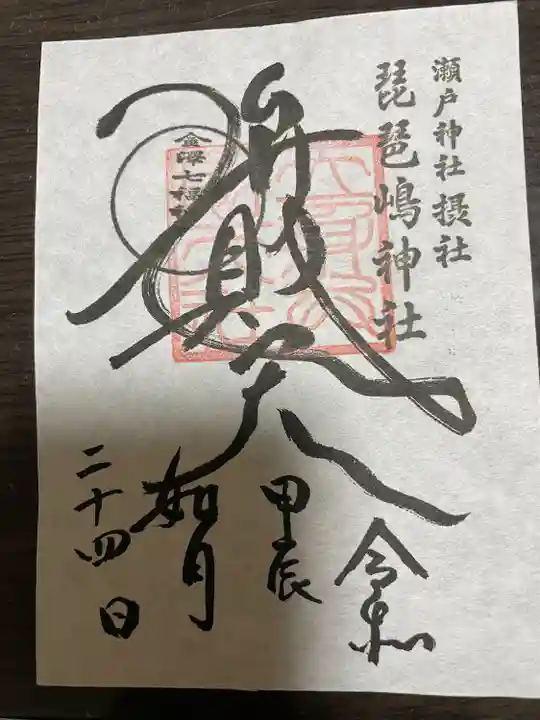 瀬戸神社 摂社
琵琶嶋神社
弁財天
金沢七福神
令和
甲辰
如月
二十四日